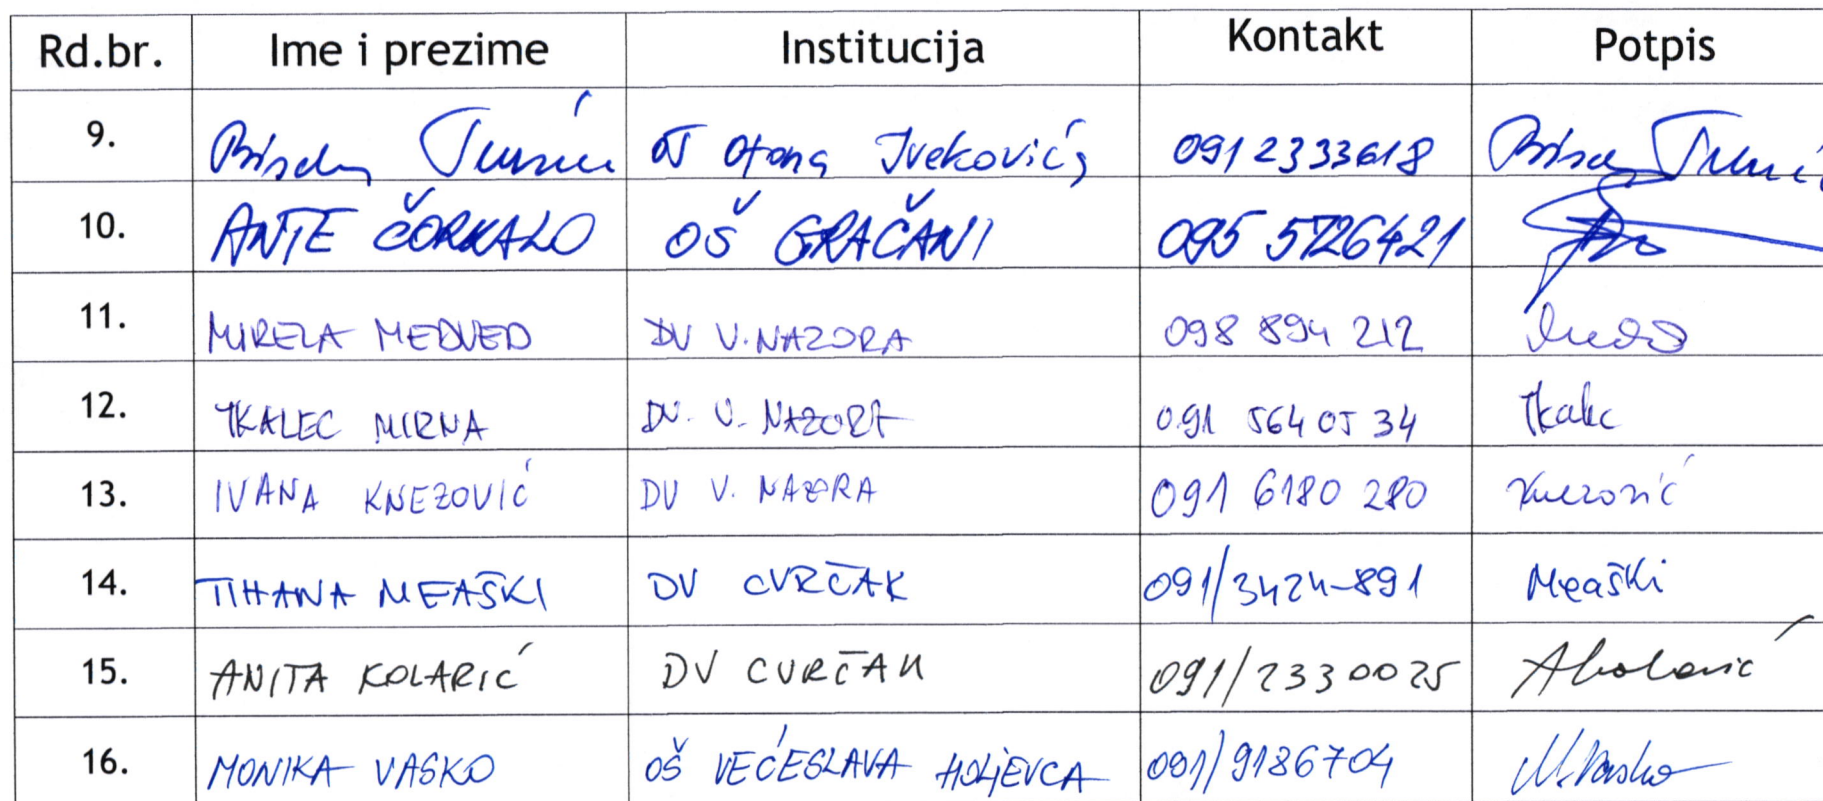 Rd.br. Ime i prezime Institucija Kontakt Potpis
9. OŠ Otona Ivekovića 091 2333618
10. ANTE ČORKALO OŠ GRAČANI 095 5726421
11. MIRELA MEDVED DV V. NAZORA 098 894 212
12. TKALEC MIRNA DV. V. NAZORA 091 564 05 34 Tkalec
13. IVANA KNEZOVIĆ DV V. NAZORA 091 6180 280 Knezović
14. TIHANA MEAŠKI DV CVRČAK 091/3424-891 Meaški
15. ANITA KOLARIĆ DV CVRČAK 091/2330025 AKolarić
16. MONIKA VASKO OŠ VEĆESLAVA HOLJEVCA 091/9186704 M.Vasko